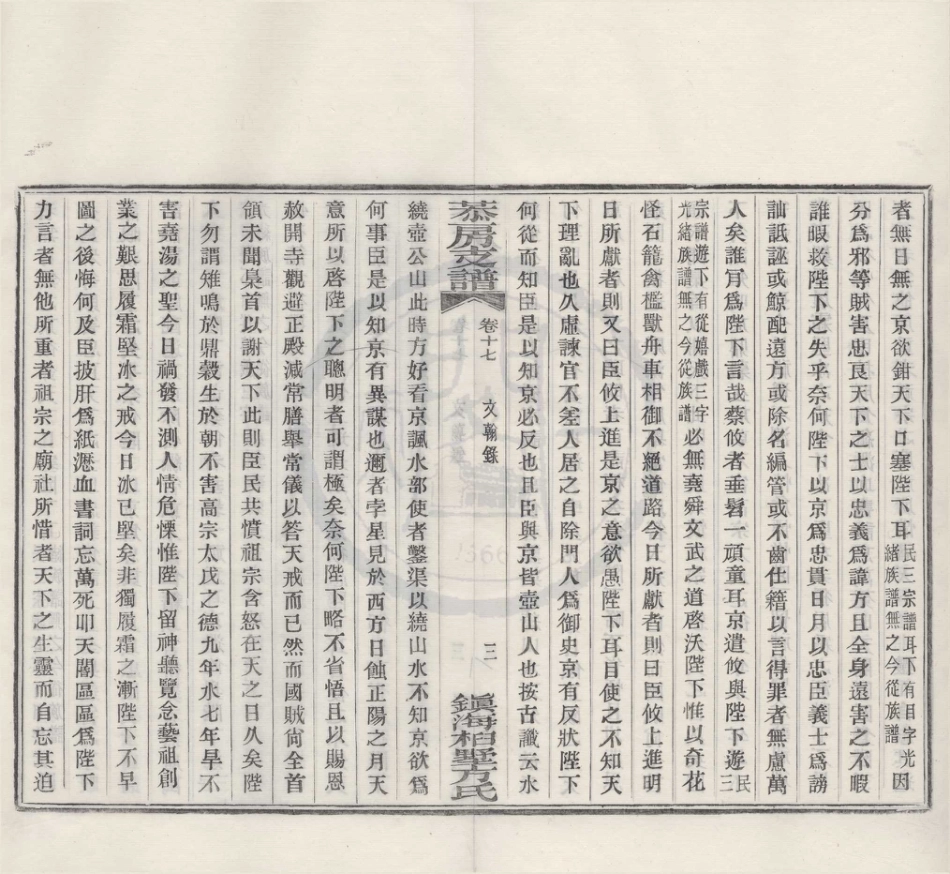 者無日無之京欲鉗天下口塞陛下耳民三宗譜耳下有目字光因緒族譜無之今從族譜
分爲邪等賊害忠良天下之士以忠義爲諱方且全身遠害之不暇
誰暇救陛下之失乎奈何陛下以京爲忠貫日月以忠臣義士爲謗
訕詆誣或鯨配遠方或除名編管或不齒仕籍以言得罪者無慮萬
人矣誰肯爲陛下言哉蔡攸者垂髫一頑童耳京遣攸與陛下遊民三
宗譜遊下有從嬉戲三字光緒族譜無之今從族譜必無堯舜文武之道啓沃陛下惟以奇花
怪石籠禽檻獸舟車相御不絕道路今日所獻者則曰臣攸上進明
日所獻者則又曰臣攸上進是京之意欲愚陛下耳目使之不知天
下理亂也久虛諫官不差人居之自除門人爲御史京有反狀陛下
何從而知臣是以知京必反也且臣與京皆壺山人也按古讖云水
恭房支譜
卷十七
文翰錄
三
鎮海柏墅方氏
繞壺公山此時方好看京諷水部使者鑿渠以繞山水不知京欲爲
何事臣是以知京有異謀也邇者孛星見於西方日蝕正陽之月天
意所以啓陛下之聰明者可謂極矣奈何陛下略不省悟且以賜恩
赦開寺觀避正殿減常膳舉常儀以答天戒而已然而國賊尙全首
領未聞梟首以謝天下此則臣民共憤祖宗含怒在天之日久矣陛
下勿謂雉鳴於鼎穀生於朝不害高宗太戊之德九年水七年旱不
害堯湯之聖今日禍發不測人情危慄惟陛下留神聽覽念藝祖創
業之艱思履霜堅冰之戒今日冰已堅矣非獨履霜之漸陛下不早
圖之後悔何及臣披肝爲紙瀝血書詞忘萬死叩天閽區區爲陛下
力言者無他所重者祖宗之廟社所惜者天下之生靈而自忘其迫